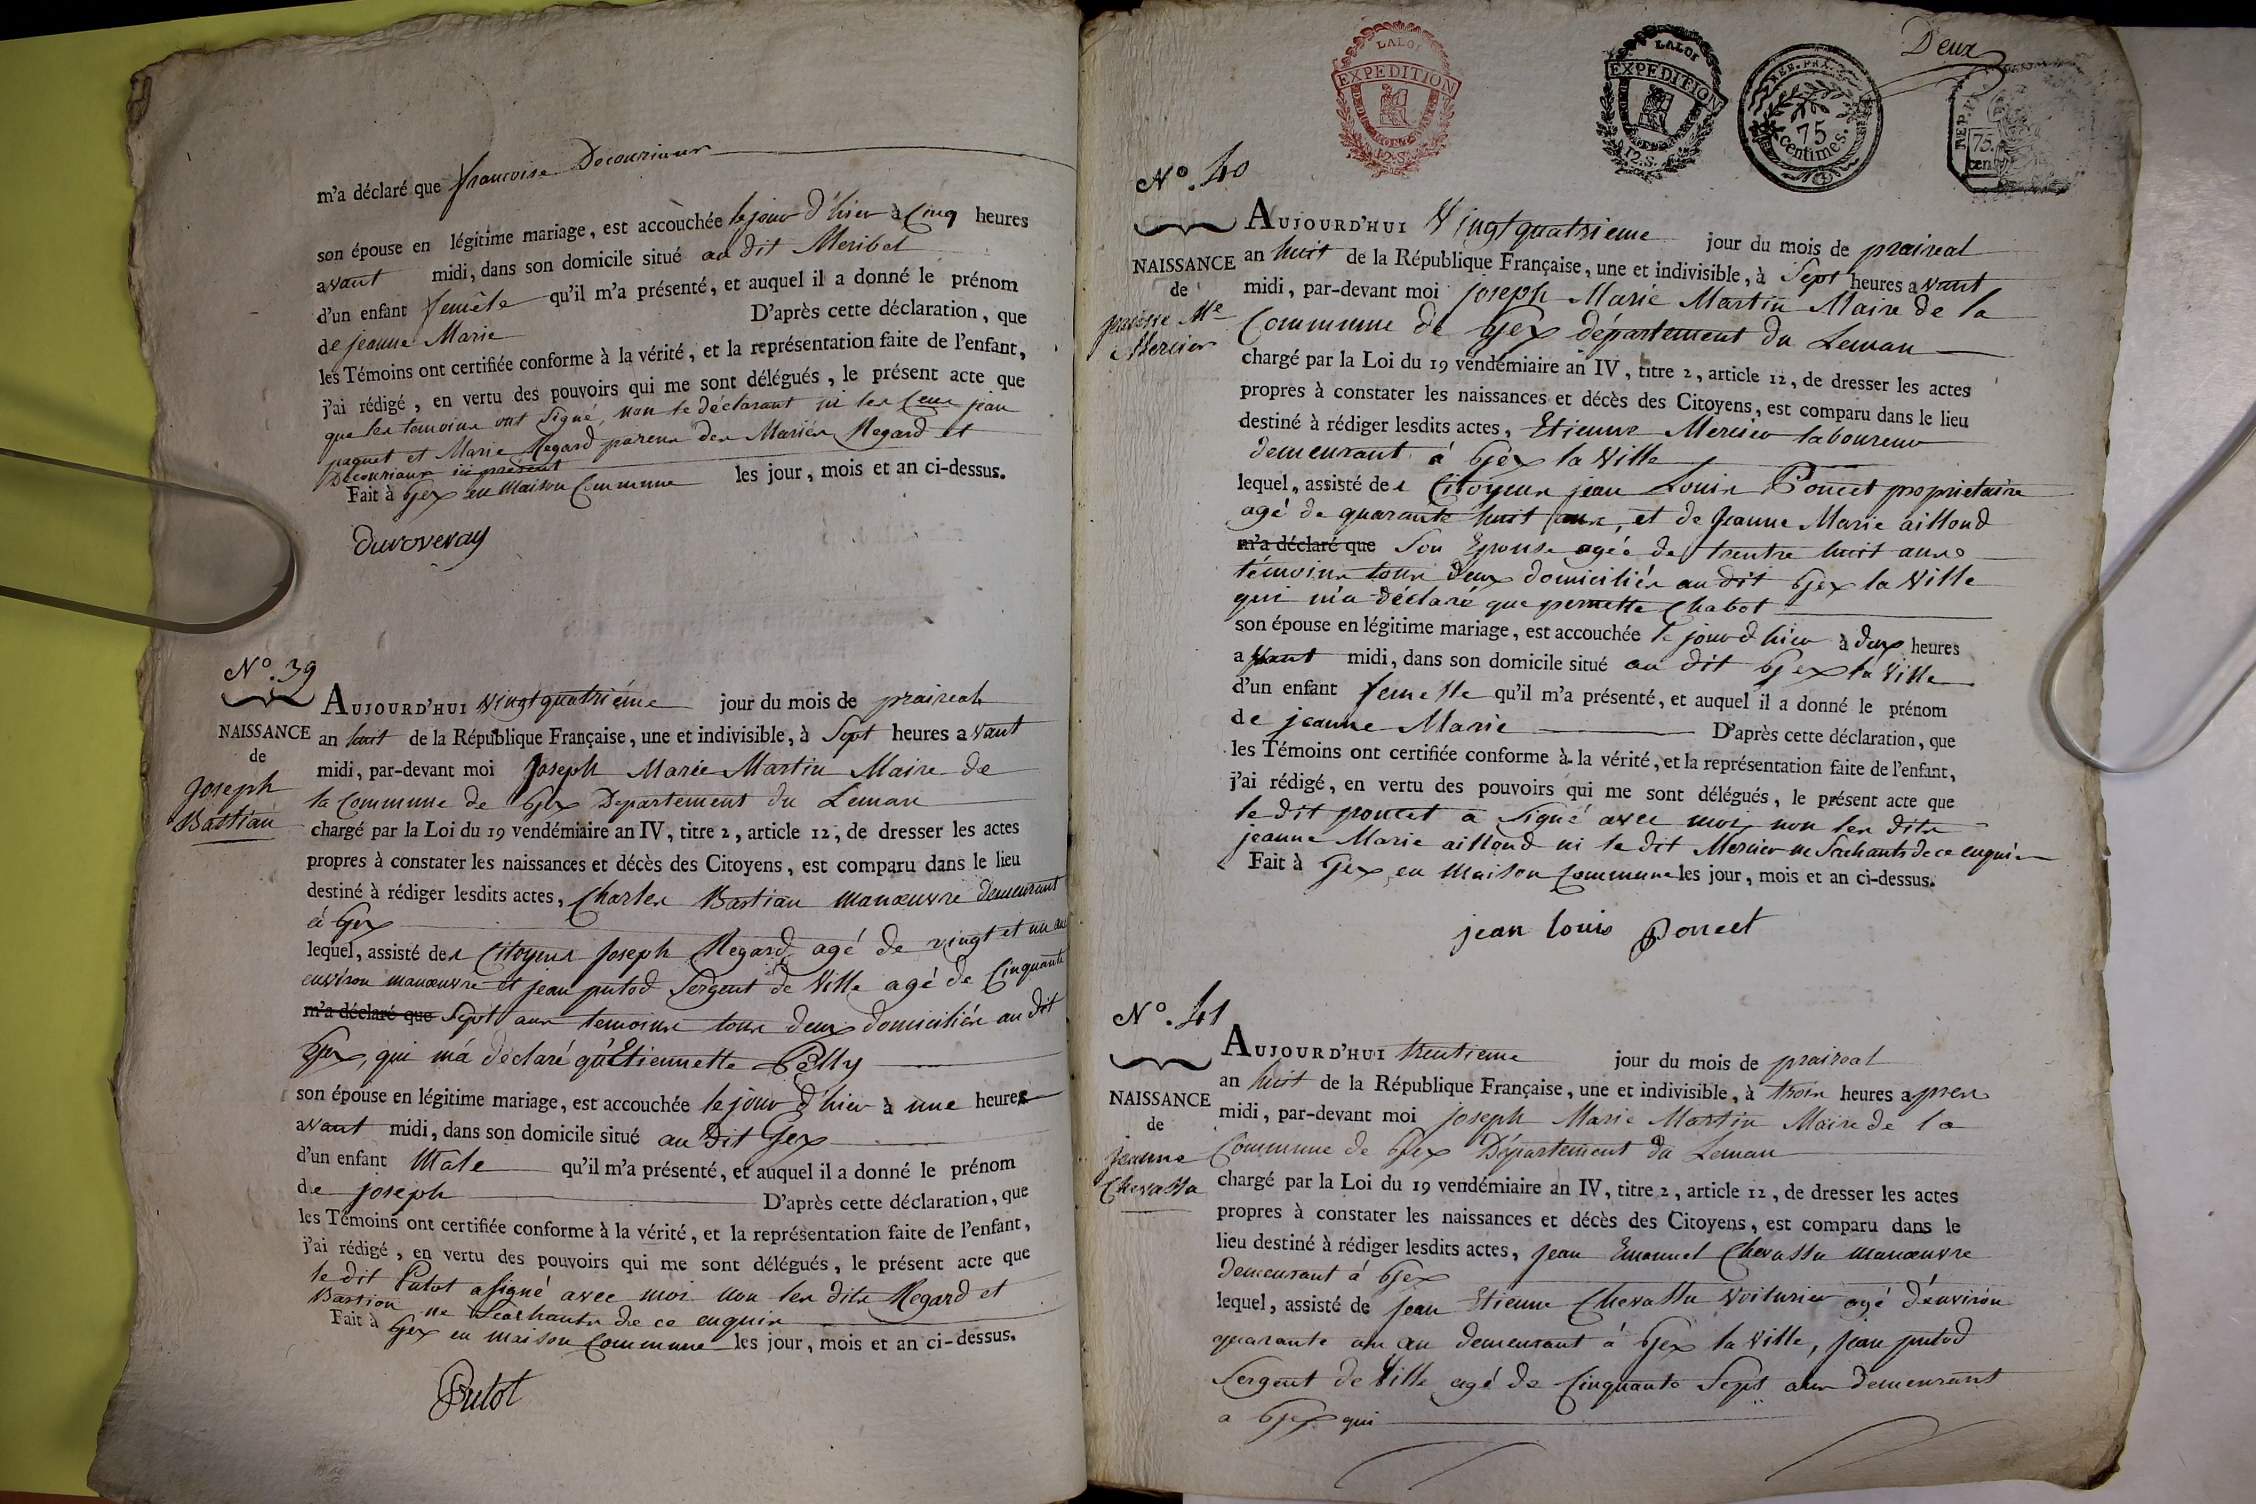 m'a déclaré que francoise Decourioux
son épouse en légitime mariage, est accouchée le jour d'hier à Cinq heures
avant midi, dans son domicile situé au dit Meribel
d'un enfant femêle qu'il m'a présenté, et auquel il a donné le prénom
de jeanne Marie D'après cette déclaration, que
les Témoins ont certifiée conforme à la vérité, et la représentation faite de l'enfant,
j'ai rédigé, en vertu des pouvoirs qui me sont délégués, le présent acte que
que les temoins ont signé, non le déclarant ni les jean
paquet et Marie Regard parens des Mariés Regard et
Decourioux ici présent
Fait à Gex en maison Commune les jour, mois et an ci-dessus.
duroveray
N°. 39
AUJOURD'HUI vingtquatriéme jour du mois de praireal
NAISSANCE an huit de la République Française, une et indivisible, à Sept heures avant
de
midi, par-devant moi Joseph Marie Martin Maire de
Joseph
la Commune de Gex Departement du Leman
Bastian
chargé par la Loi du 19 vendémiaire an IV, titre 2, article 12, de dresser les actes
propres à constater les naissances et décès des Citoyens, est comparu dans le lieu
destiné à rédiger lesdits actes, Charles Bastian manœuvre demeurant
à Gex
lequel, assisté des Citoyens Joseph Regard agé de vingt et un ans
environ manœuvre et jean putod Sergent de Ville agé de Cinquante
m'a déclaré que Sept ans temoins tous deux domiciliés au dit
Gex, qui m'a déclaré qu'Etiennette Pelly
son épouse en légitime mariage, est accouchée le jour d'hier à une heures
avant midi, dans son domicile situé au dit Gex
d'un enfant Male qu'il m'a présenté, et auquel il a donné le prénom
de joseph D'après cette déclaration, que
les Témoins ont certifiée conforme à la vérité, et la représentation faite de l'enfant,
j'ai rédigé, en vertu des pouvoirs qui me sont délégués, le présent acte que
le dit Putot a signé avec moi non les dits Regard et
Bastion ne Scachants de ce enquis
Fait à Gex en maison Commune les jour, mois et an ci-dessus.
Putot
Deux
LA LOI
EXPEDITION
12.S.
LA LOI
EXPEDITION
12.S.
REP. FRA.
75
centimes.
REP.
75.
cen
N°. 40
AUJOURD'HUI Vingtquatrieme jour du mois de praireal
NAISSANCE an huit de la République Française, une et indivisible, à Sept heures avant
de
midi, par-devant moi Joseph Marie Martin Maire de la
Mie
Commune de Gex département du Leman
Mercier
chargé par la Loi du 19 vendémiaire an IV, titre 2, article 12, de dresser les actes
propres à constater les naissances et décès des Citoyens, est comparu dans le lieu
destiné à rédiger lesdits actes, Etienne Mercier laboureur
demeurant à Gex la Ville
lequel, assisté des Citoyens jean Louis Poncet proprietaire
agé de quarante huit ans, et de Jeanne Marie aillond
m'a déclaré que Son Epouse agée de trentre huit ans
témoins tous deux domiciliés au dit Gex la Ville
qui m'a déclaré que pernette Chabot
son épouse en légitime mariage, est accouchée le jour d'hier à deux heures
avant midi, dans son domicile situé au dit Gex la Ville
d'un enfant femelle qu'il m'a présenté, et auquel il a donné le prénom
de jeanne Marie D'après cette déclaration, que
les Témoins ont certifiée conforme à la vérité, et la représentation faite de l'enfant,
j'ai rédigé, en vertu des pouvoirs qui me sont délégués, le présent acte que
le dit poncet a signé avec moi, non les dits
jeanne Marie aillond ni le dit Mercier ne Scachants de ce enquis
Fait à Gex en Maison Commune les jour, mois et an ci-dessus.
jean louis poncet
N°. 41
AUJOURD'HUI trentieme jour du mois de praireal
NAISSANCE an huit de la République Française, une et indivisible, à trois heures apres
de
midi, par-devant moi joseph Marie Martin Maire de la
Jeanne
Commune de Gex Département du Leman
Chevassu
chargé par la Loi du 19 vendémiaire an IV, titre 2, article 12, de dresser les actes
propres à constater les naissances et décès des Citoyens, est comparu dans le
lieu destiné à rédiger lesdits actes, jean Emanuel Chevassu manœuvre
demeurant à Gex
lequel, assisté de jean Etienne Chevassu Voiturier agé d'environ
quarante un an demeurant à Gex la Ville, jean putod
Sergent de Ville agé de Cinquante Sept ans demeurant
a Gex qui